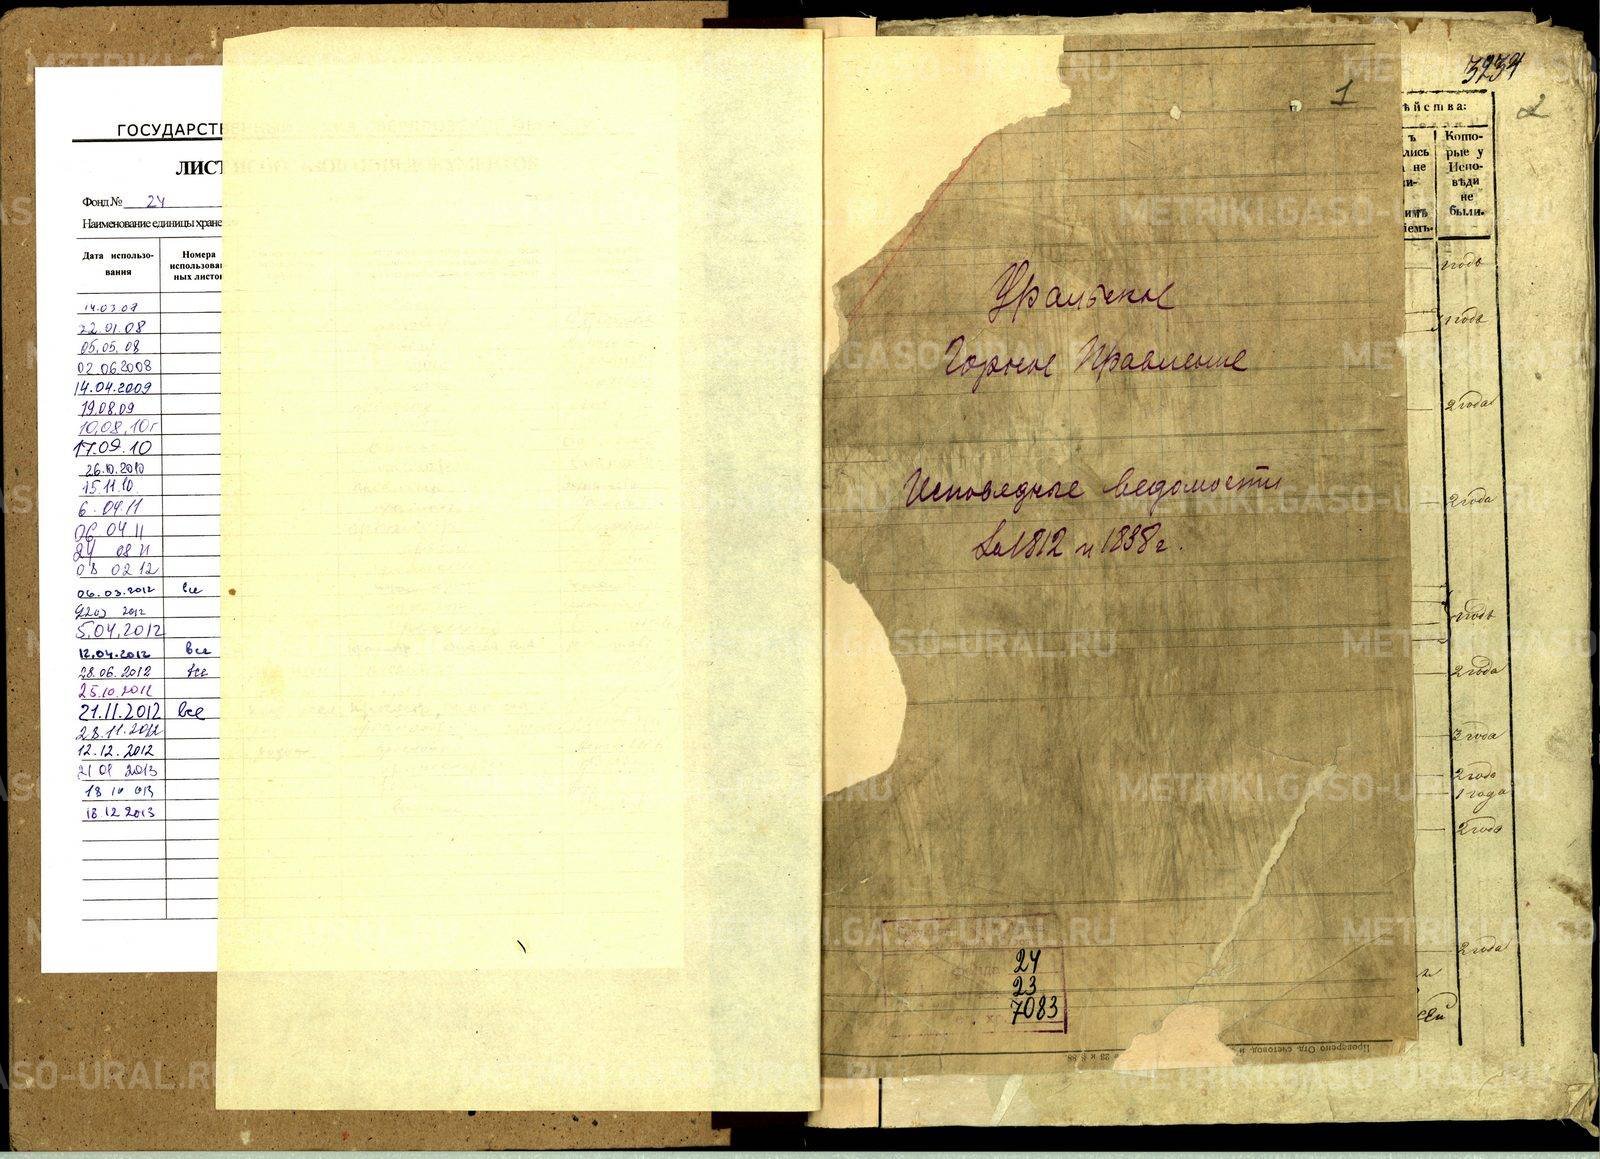 ГОСУДАРСТВЕ
ЛИСТ
Фонд № 24
Наименование единицы хране
Дата использо-
вания
Номера
использован
ных листов
14.03.07
22.01.08
05.05.08
02.06.2008
14.04.2009
19.08.09
10.08.10г
17.09.10
26.10.2010
15.11.10
6.04.11
06 04 11
24 08 11
03 02 12
06.03.2012 все
2012
5.04.2012
12.04.2012 все
28.06.2012 все
25.10.2012
21.11.2012 все
28.11.2012
12.12.2012
21 01 2013
18.12.2013
1
Уральское
Горное Правление
Исповедные ведомости
за 1812 и 1838 г.
фонда 24
23
7083
Проверено Отд. счетовод. и
3234
2
ѣйства:
ъ
лись
а не
ли-
имъ
іемъ.
Кото-
рые у
Испо-
вѣди
не
были.
1 годъ
1 годъ
2 года
2 года
1 годъ
2 года
3 года
2 года
1 года
2 года
2 года
METRIKI.GASO-URAL.RU